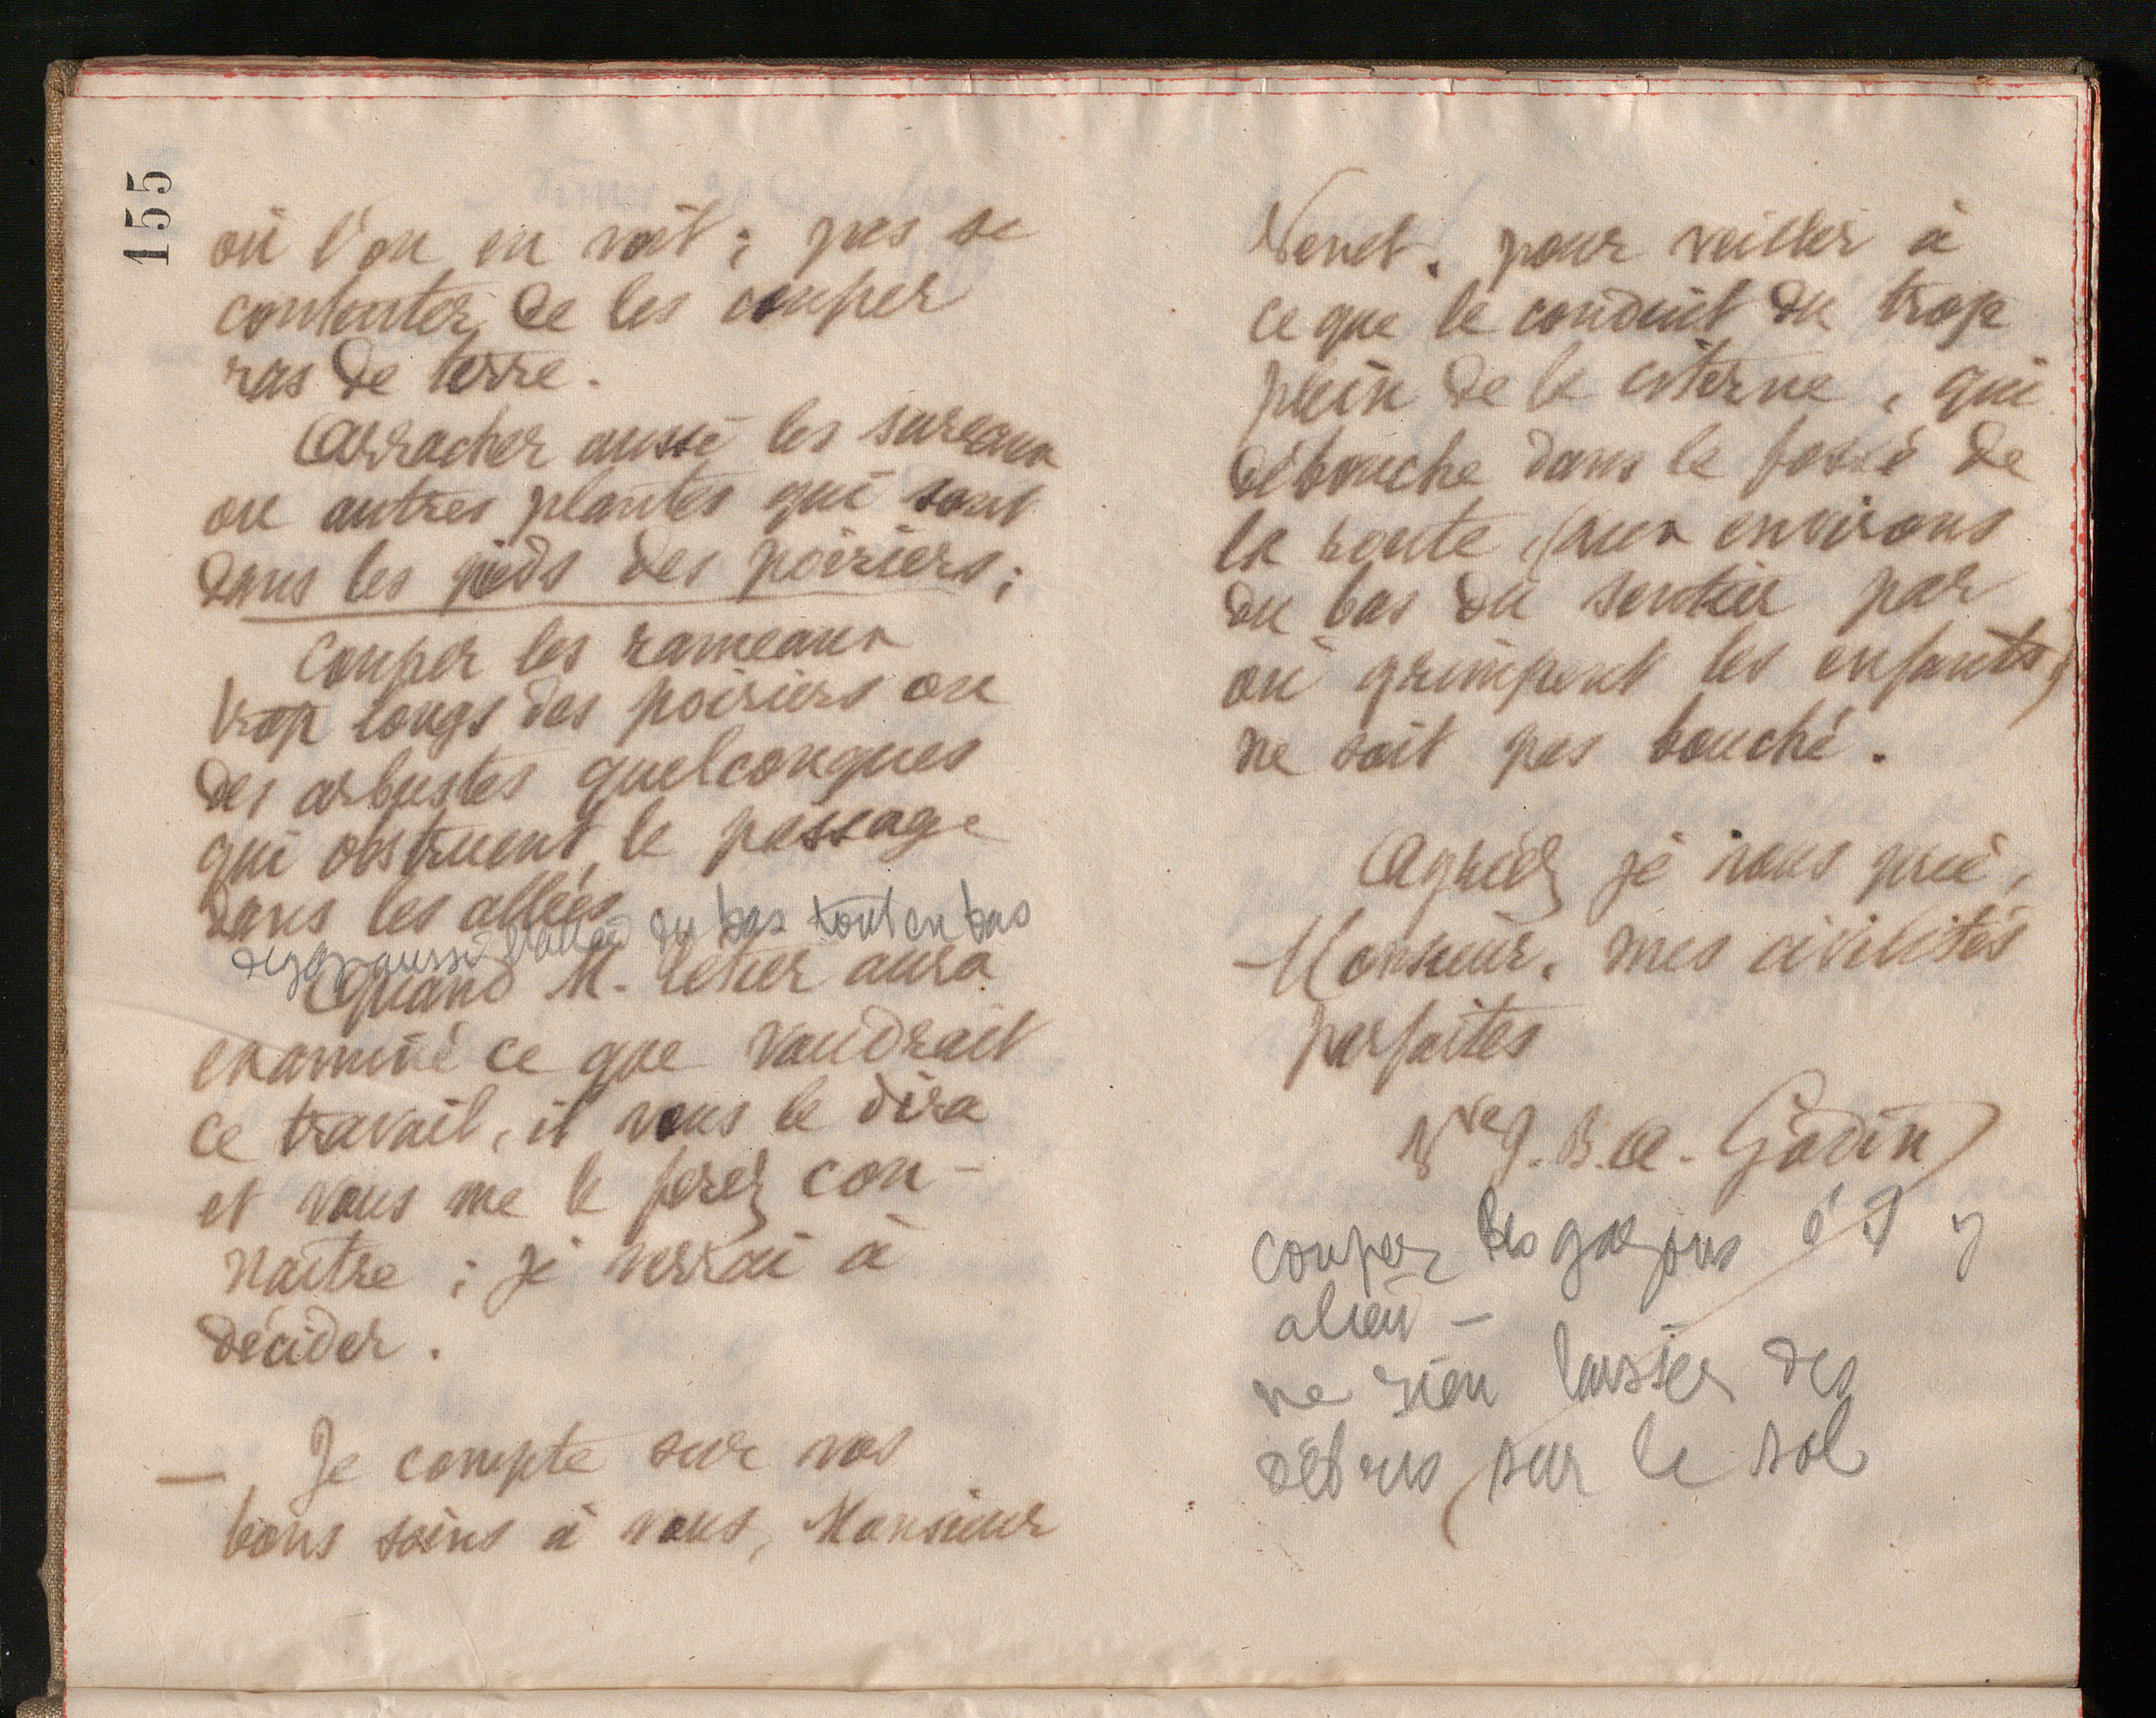 155
où l'on en voit ; pas se
contenter de les couper
ras de terre.
Arracher aussi les sureaux
ou autres plantes qui sont
dans les pieds des poiriers ;
Couper les rameaux
trop longs des poiriers ou
des arbustes quelconques
qui obstruent le passage
dans les allées
aussi l'allée du bas tout en bas
Quand M. aura
examiné ce que vaudrait
ce travail, il vous le dira
et vous me le ferez con-
naître ; je verrai à
décider.
— Je compte sur vos
bons soins à vous, Monsieur
Venet. pour veiller à
ce que le conduit du trop
plein de la citerne, qui
débouche dans le fossé de
la route, (aux environs
du bas du sentier par
où grimpent les enfants,)
ne soit pas bouché.
Agréez je vous prie,
Monsieur, mes civilités
parfaites
Vve J. B. A. Godin
couper les gazons s'il y
a lieu —
ne rien laisser des
débris sur le sol